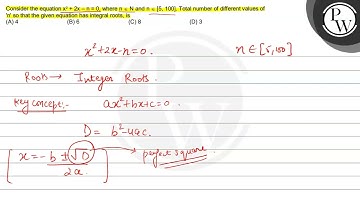 Consider the equation x² + 2x – n = 0, where n ∈ N and n ∈ [5, 100]. Total number of different values of
'n' so that the given equation has integral roots, is
(A) 4 (B) 6 (C) 8 (D) 3
x²+2x-n=0. n ∈ [5,100]
Roots → Integer Roots.
Key concept:- ax²+bx+c=0
D = b²-4ac.
x = -b ± √D → perfect square.
2a